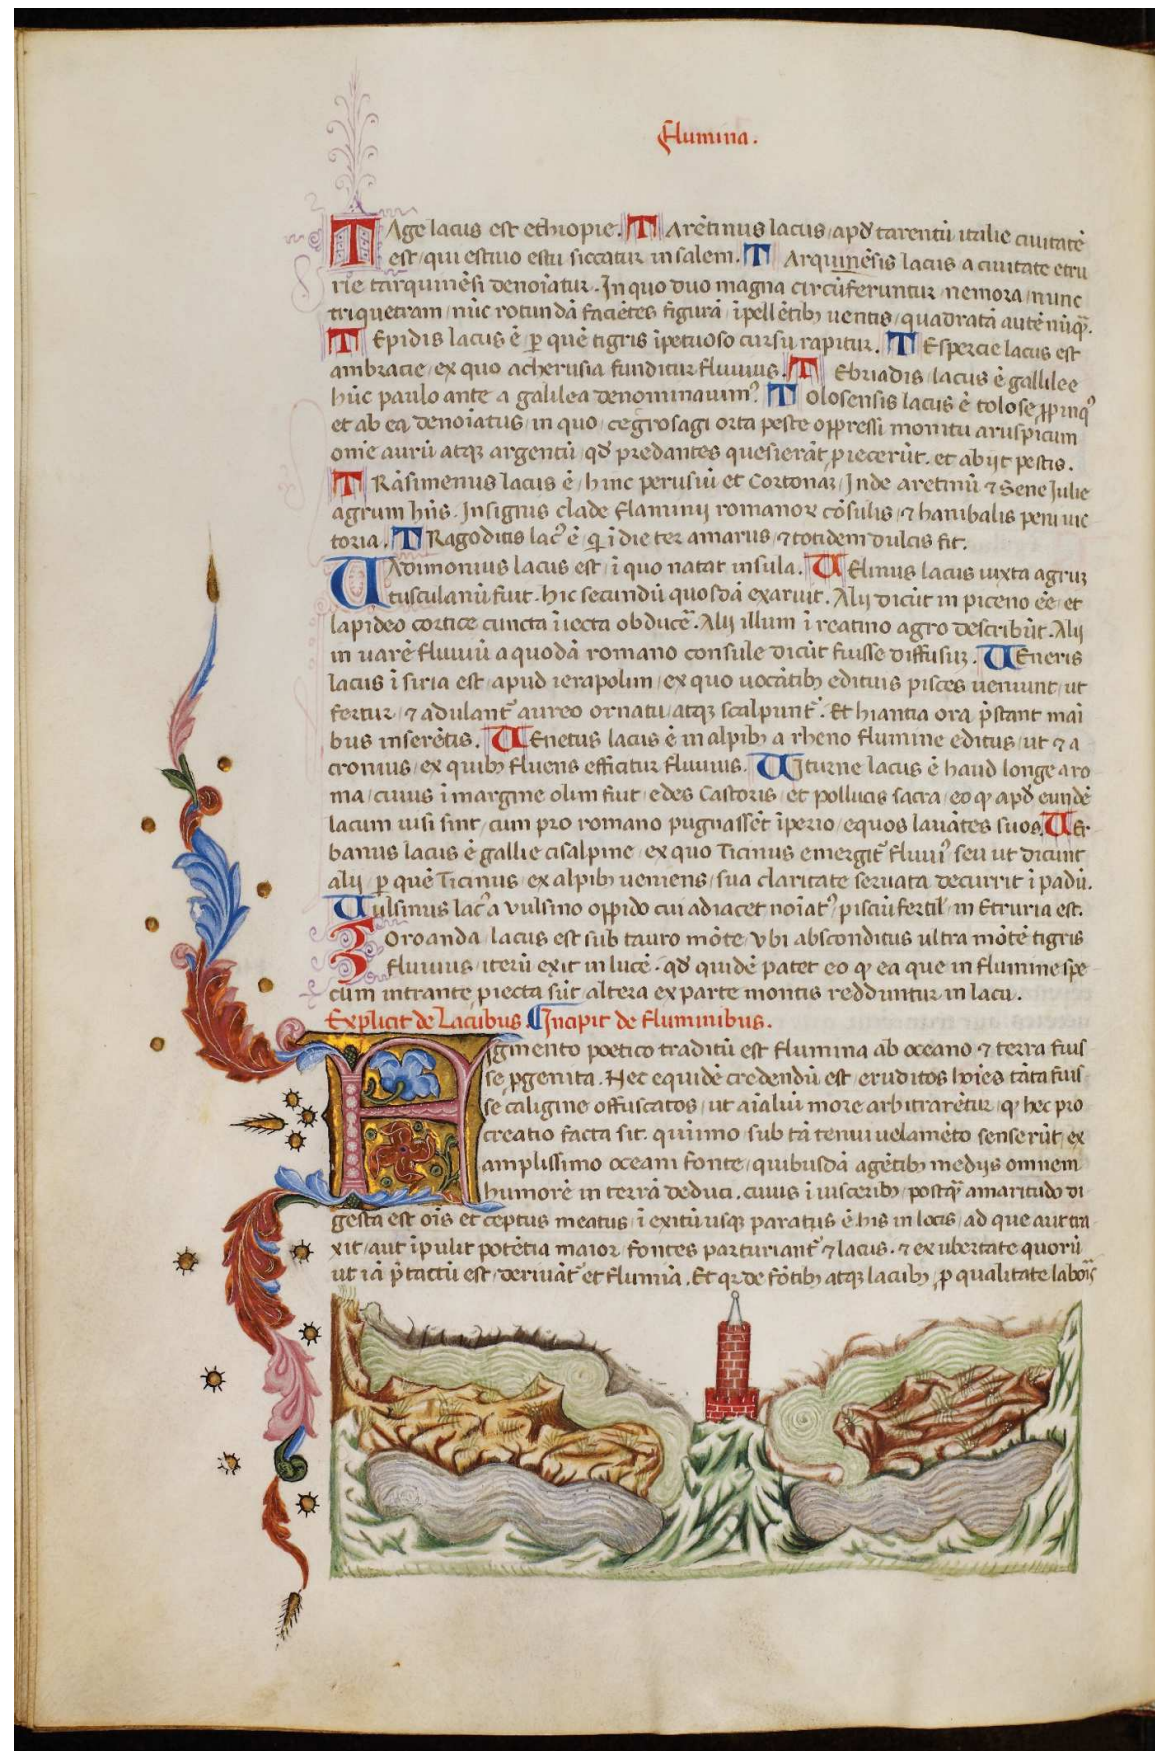 Flumina.
TAge lacus est ethiopie. TArētinus lacus apđ tarentū italie ciuitatē
est, qui estiuo estu siccatur in salem. TArquinēsis lacus a ciuitate etru
rie tarquinēsi denoiatur. In quo duo magna circūferuntur nemora, nunc
triquetram, nūc rotundā faciētes figurā, īpellētibꝫ uentis, quadratā autē nūqꝫ.
TEpidis lacus ē, ꝑ quē tigris īpetuoso cursu rapitur. TEspercie lacus est
ambracie, ex quo acherusia funditur fluuius. TEbriadis lacus ē gallilee
hūc paulo ante a galilea denominauimꝰ. Tolosensis lacus ē tolose ꝓpinqꝰ
et ab ea denoiatus, in quo cegrosagi orta peste oppressi monitu aruspicum
onie aurū atqꝫ argentū, qđ predantes quesierāt piecerūt. et abijt pestis.
TRāsimenus lacus ē, hinc perusiū et Cortonaꝫ, Inde aretinū ⁊ Sene Iulie
agrum hn̄s. Insignis clade flaminij romanoꝝ cōsulis, ⁊ hanibalis peni uic
toria. TRagoditis lacꝰ ē, q ī die ter amarus, ⁊ totidem dulcis fit.
UAdimonius lacus est, ī quo natat insula. UElinus lacus iuxta agruꝫ
tusculanū fuit. hic secundū quosdā exaruit. Alij dicūt in piceno eē, et
lapideo cortice cuncta īiecta obducē. Alij illum ī reatino agro describūt. Alij
in narē fluuiū a quodā romano consule dicūt fuisse diffusuꝫ. UEneris
lacus ī siria est, apud ierapolim, ex quo uocātibꝫ edituis pisces ueniunt, ut
fertur, ⁊ adulant̄ aureo ornatu, atqꝫ scalpunt̄. Et hiantia ora p̄stant mai
bus inserētis. UEnetus lacus ē in alpibꝫ a rheno flumine editus, ut ⁊ a
cronius, ex quibꝫ fluens efficitur fluuius. UIturne lacus ē haud longe a ro
ma, cuius ī margine olim fuit edes Castoris, et pollucis sacra, eo ꝙ apđ eundē
lacum uisi sint, cum pro romano pugnassēt īperio, equos lauātes suos. UEr
banus lacus ē gallie cisalpine, ex quo Ticinus emergit̄ fluuiꝰ, seu ut dicunt
alij, ꝑ quē Ticinus, ex alpibꝫ ueniens, sua claritate seruata decurrit ī padū.
Uulsinus lacꝰ a vulsino oppido cui adiacet noiatꝰ, pisciū fertil̓ in Etruria est.
Zoroanda lacus est sub tauro mōte, vbi absconditus ultra mōtē tigris
fluuius, iterū exit in lucē. qđ quidē patet eo ꝙ ea que in flumine spe
cum intrante, piecta sūt, altera ex parte montis redduntur in lacu.
Explicit de Lacubus. Incipit de fluminibus.
FIgmento poetico traditū est flumina ab oceano ⁊ terra fuis
se ꝓgenita. Nec equidē credendū est, eruditos hoies tāta fuis
se caligine offuscatos, ut aialiū more arbitrarētur, ꝙ hec pro
creatio facta sit. quinimo sub tā tenui uelamēto senserūt, ex
amplissimo oceani fonte, quibusdā agētibꝫ medijs omnem
humorē in terrā deduci. cuius ī uisceribꝫ, postqꝫ amaritudo di
gesta est ois et ceptus meatus, ī exitū usqꝫ paratus ē his in locis, ad que aut tra
xit, aut īpulit potētia maior, fontes parturiant̄ ⁊ lacus. ⁊ ex ubertate quorū
ut iā p̄tactū est, deriuāt̄ et flumīa. Et qꝛ de fōtibꝫ atqꝫ lacibꝫ, ꝑ qualitate laboīs